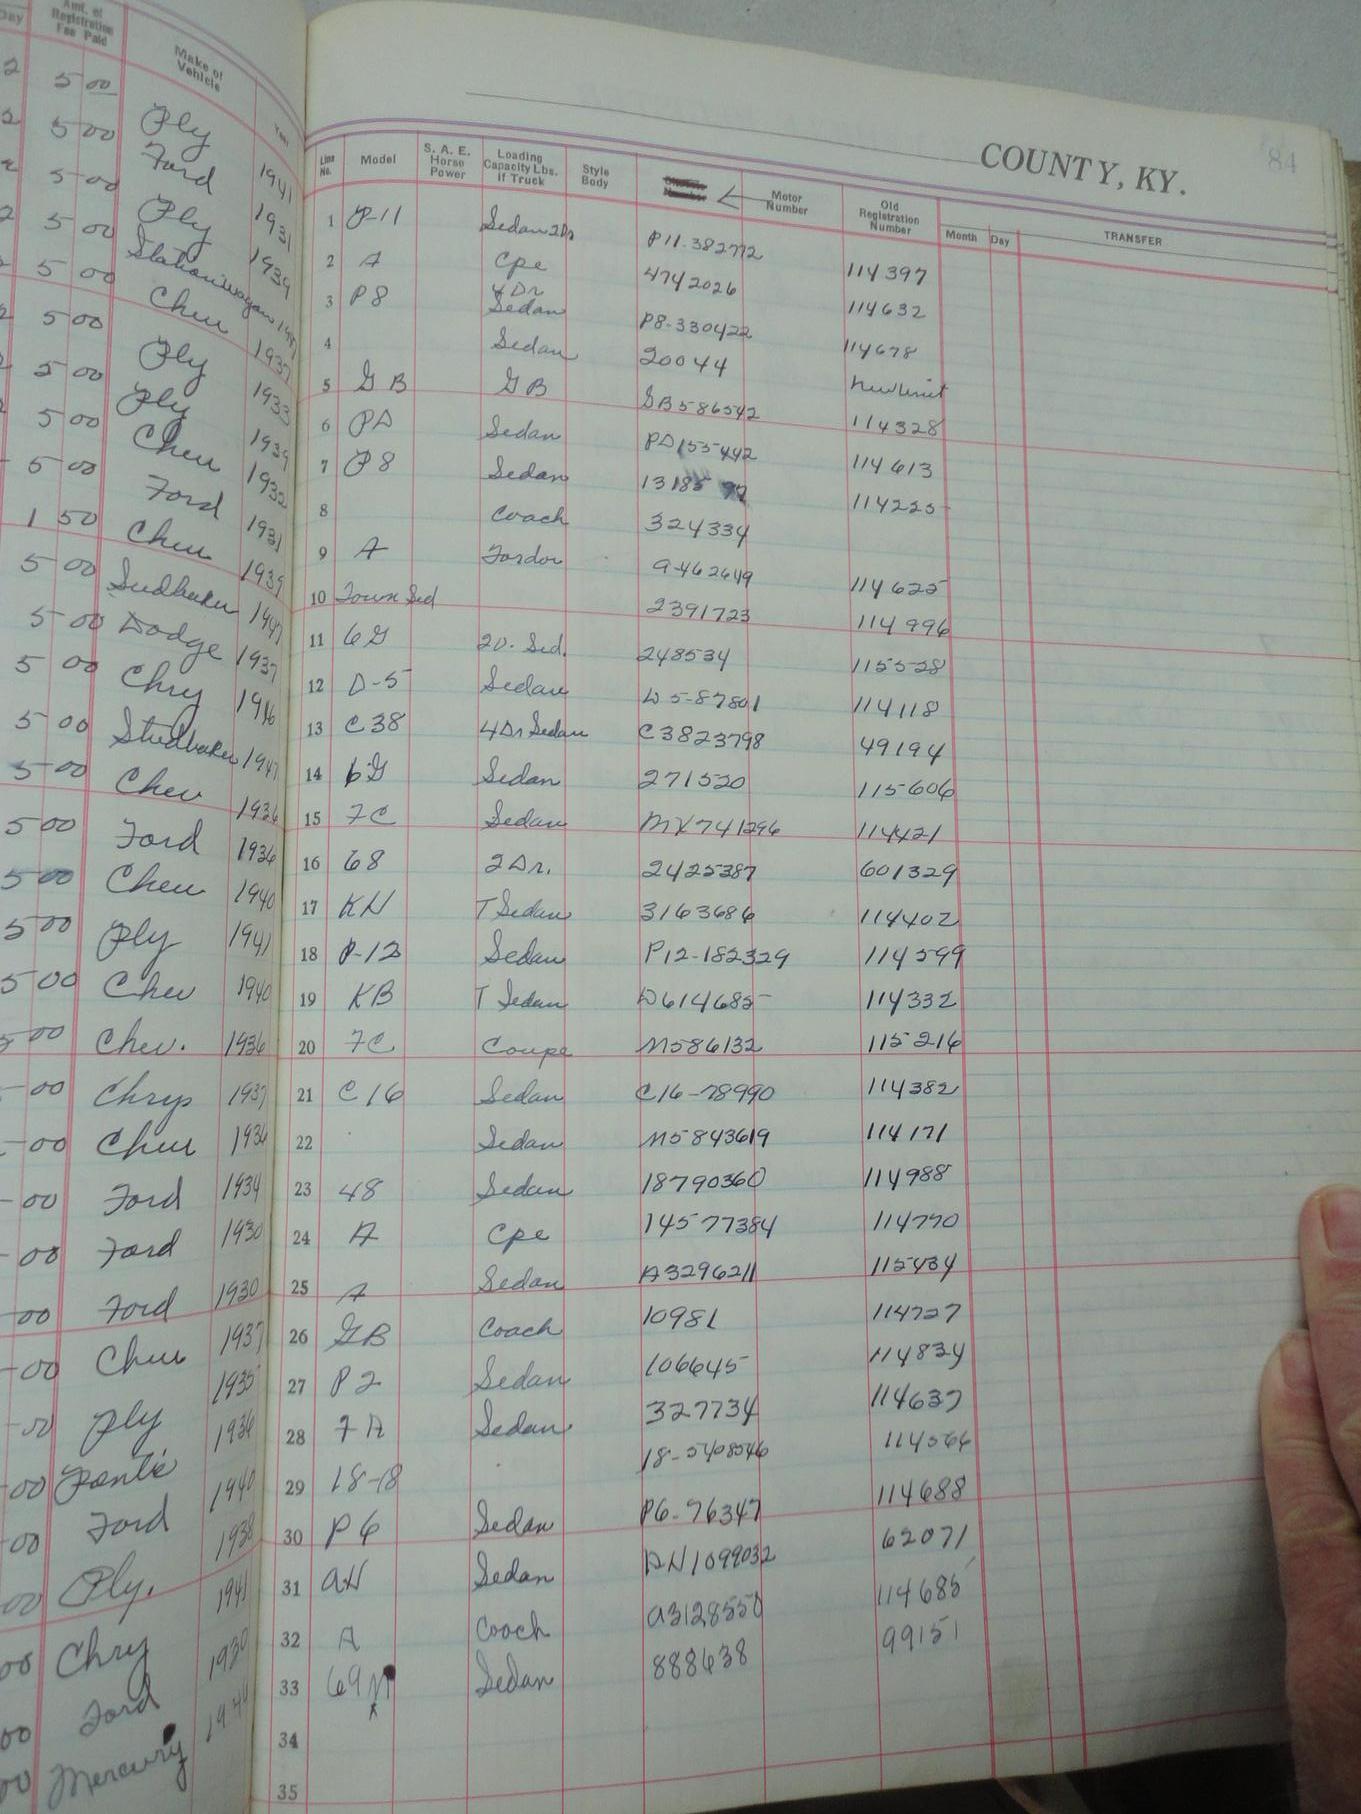 Day Amt. of Registration Fee Paid Make of Vehicle Year
2 5 00 Ply 1941
2 5 00 Ford 1931
5 00 Ply 1939
2 5 00 Stationwagon
5 00 Chev 1937
5 00 Ply 1933
5 00 Ply 1939
5 00 Chev 1932
5 00 Ford 1931
1 50 Chev 1939
5 00 Sudbaker 1947
5 00 Dodge 1937
5 00 Chry 1946
5 00 Studbaker 1947
5 00 Chev 1936
5 00 Ford 1936
5 00 Chev 1940
5 00 Ply 1941
5 00 Chev 1940
5 00 Chev. 1936
00 Chrys 1937
00 Chev 1936
00 Ford 1934
00 Ford 1930
00 Ford 1930
00 Chev 1937
Ply 1935
00 Pontic 1936
00 Ford 1940
00 Ply. 1938
00 Chry 1941
00 Ford 1930
00 Mercury
84
COUNTY, KY.
Line No. Model S. A. E. Horse Power Loading Capacity Lbs. if Truck Style Body Motor Number Old Registration Number Month Day TRANSFER
1 P-11 Sedan 2Dr P11-382772 114397
2 A Cpe 4742026 114632
3 P8 4Dr Sedan P8-330422 114678
4 Sedan 20044 New Unit
5 GB GB GB586542 114328
6 PD Sedan PD155442 114613
7 P8 Sedan 114225
8 Coach 324334
9 A Fordor A462649 114625
10 Town Sed 2391723 114996
11 6G 2D. Sed. 248534 115528
12 D-5 Sedan D5-87801 114118
13 C38 4Dr Sedan C3823798 49194
14 6G Sedan 271520 115606
15 FC Sedan MX741296 114421
16 68 2Dr. 2425387 601329
17 KH T Sedan 3163686 114402
18 P-12 Sedan P12-182329 114599
19 KB T Sedan D614685 114332
20 FC Coupe M586132 115216
21 C16 Sedan C16-78990 114382
22 Sedan M5843619 114171
23 48 Sedan 18790360 114988
24 A Cpe 14577384 114770
25 A Sedan A3296211 115434
26 GB Coach 10981 114727
27 P2 Sedan 106645 114834
28 FA Sedan 327734 114637
29 18-18 18-5408546 114566
30 P6 Sedan P6-76347 114688
31 AH Sedan AH1099032 62071
32 A Coach A3128550 114685
33 69M Sedan 888638 99151
34
35